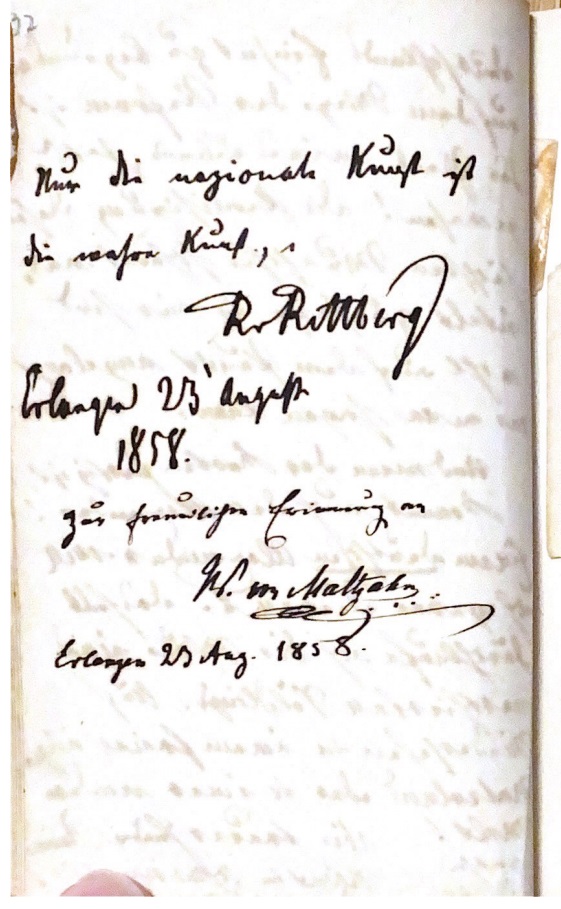 32
Nur die nazionale Kunst ist
die wahre Kunst.,
R v Rettberg
Erlangen 23 August
1858.
zur freundlichen Erinnerung an
W. von Maltzahn
Erlangen 23 Aug. 1858.